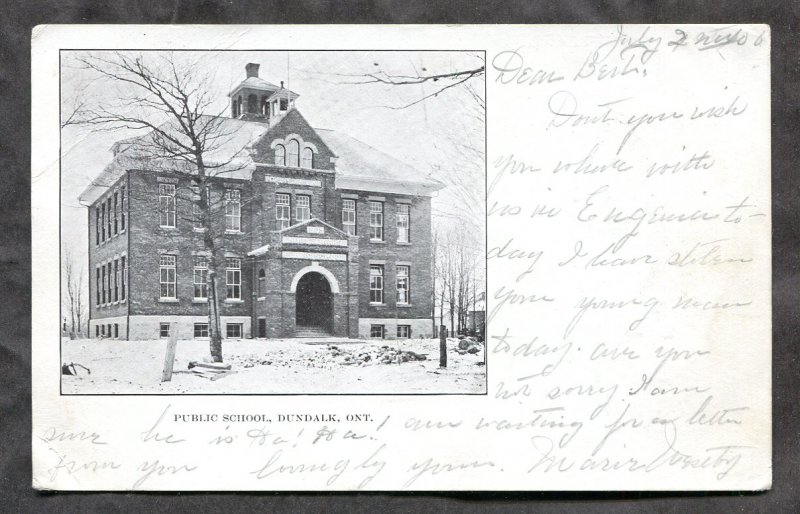 July 2 06
Dear Bert.
Don't you wish
you where with
us in Eugenia to-
day I have stolen
your young man
today. are you
not sorry I am
PUBLIC SCHOOL, DUNDALK, ONT.
sure he is Ha! Ha! I am waiting for a letter
from you lovingly yours. Marie